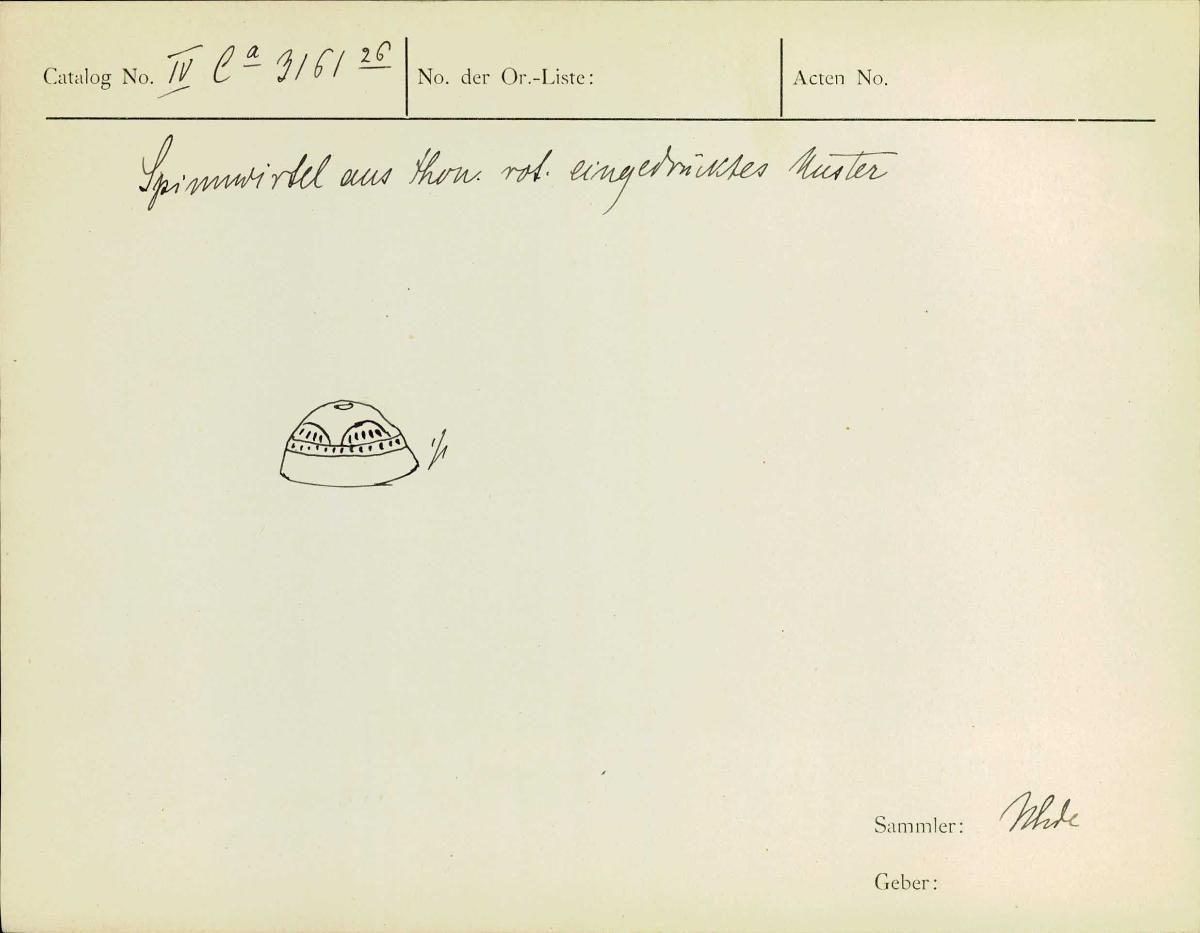 Catalog No. IV Ca 3161 26
No. der Or.-Liste:
Acten No.
Spinnwirtel aus Thon. rot. eingedrücktes Muster
1/1
Sammler: Uhde
Geber: